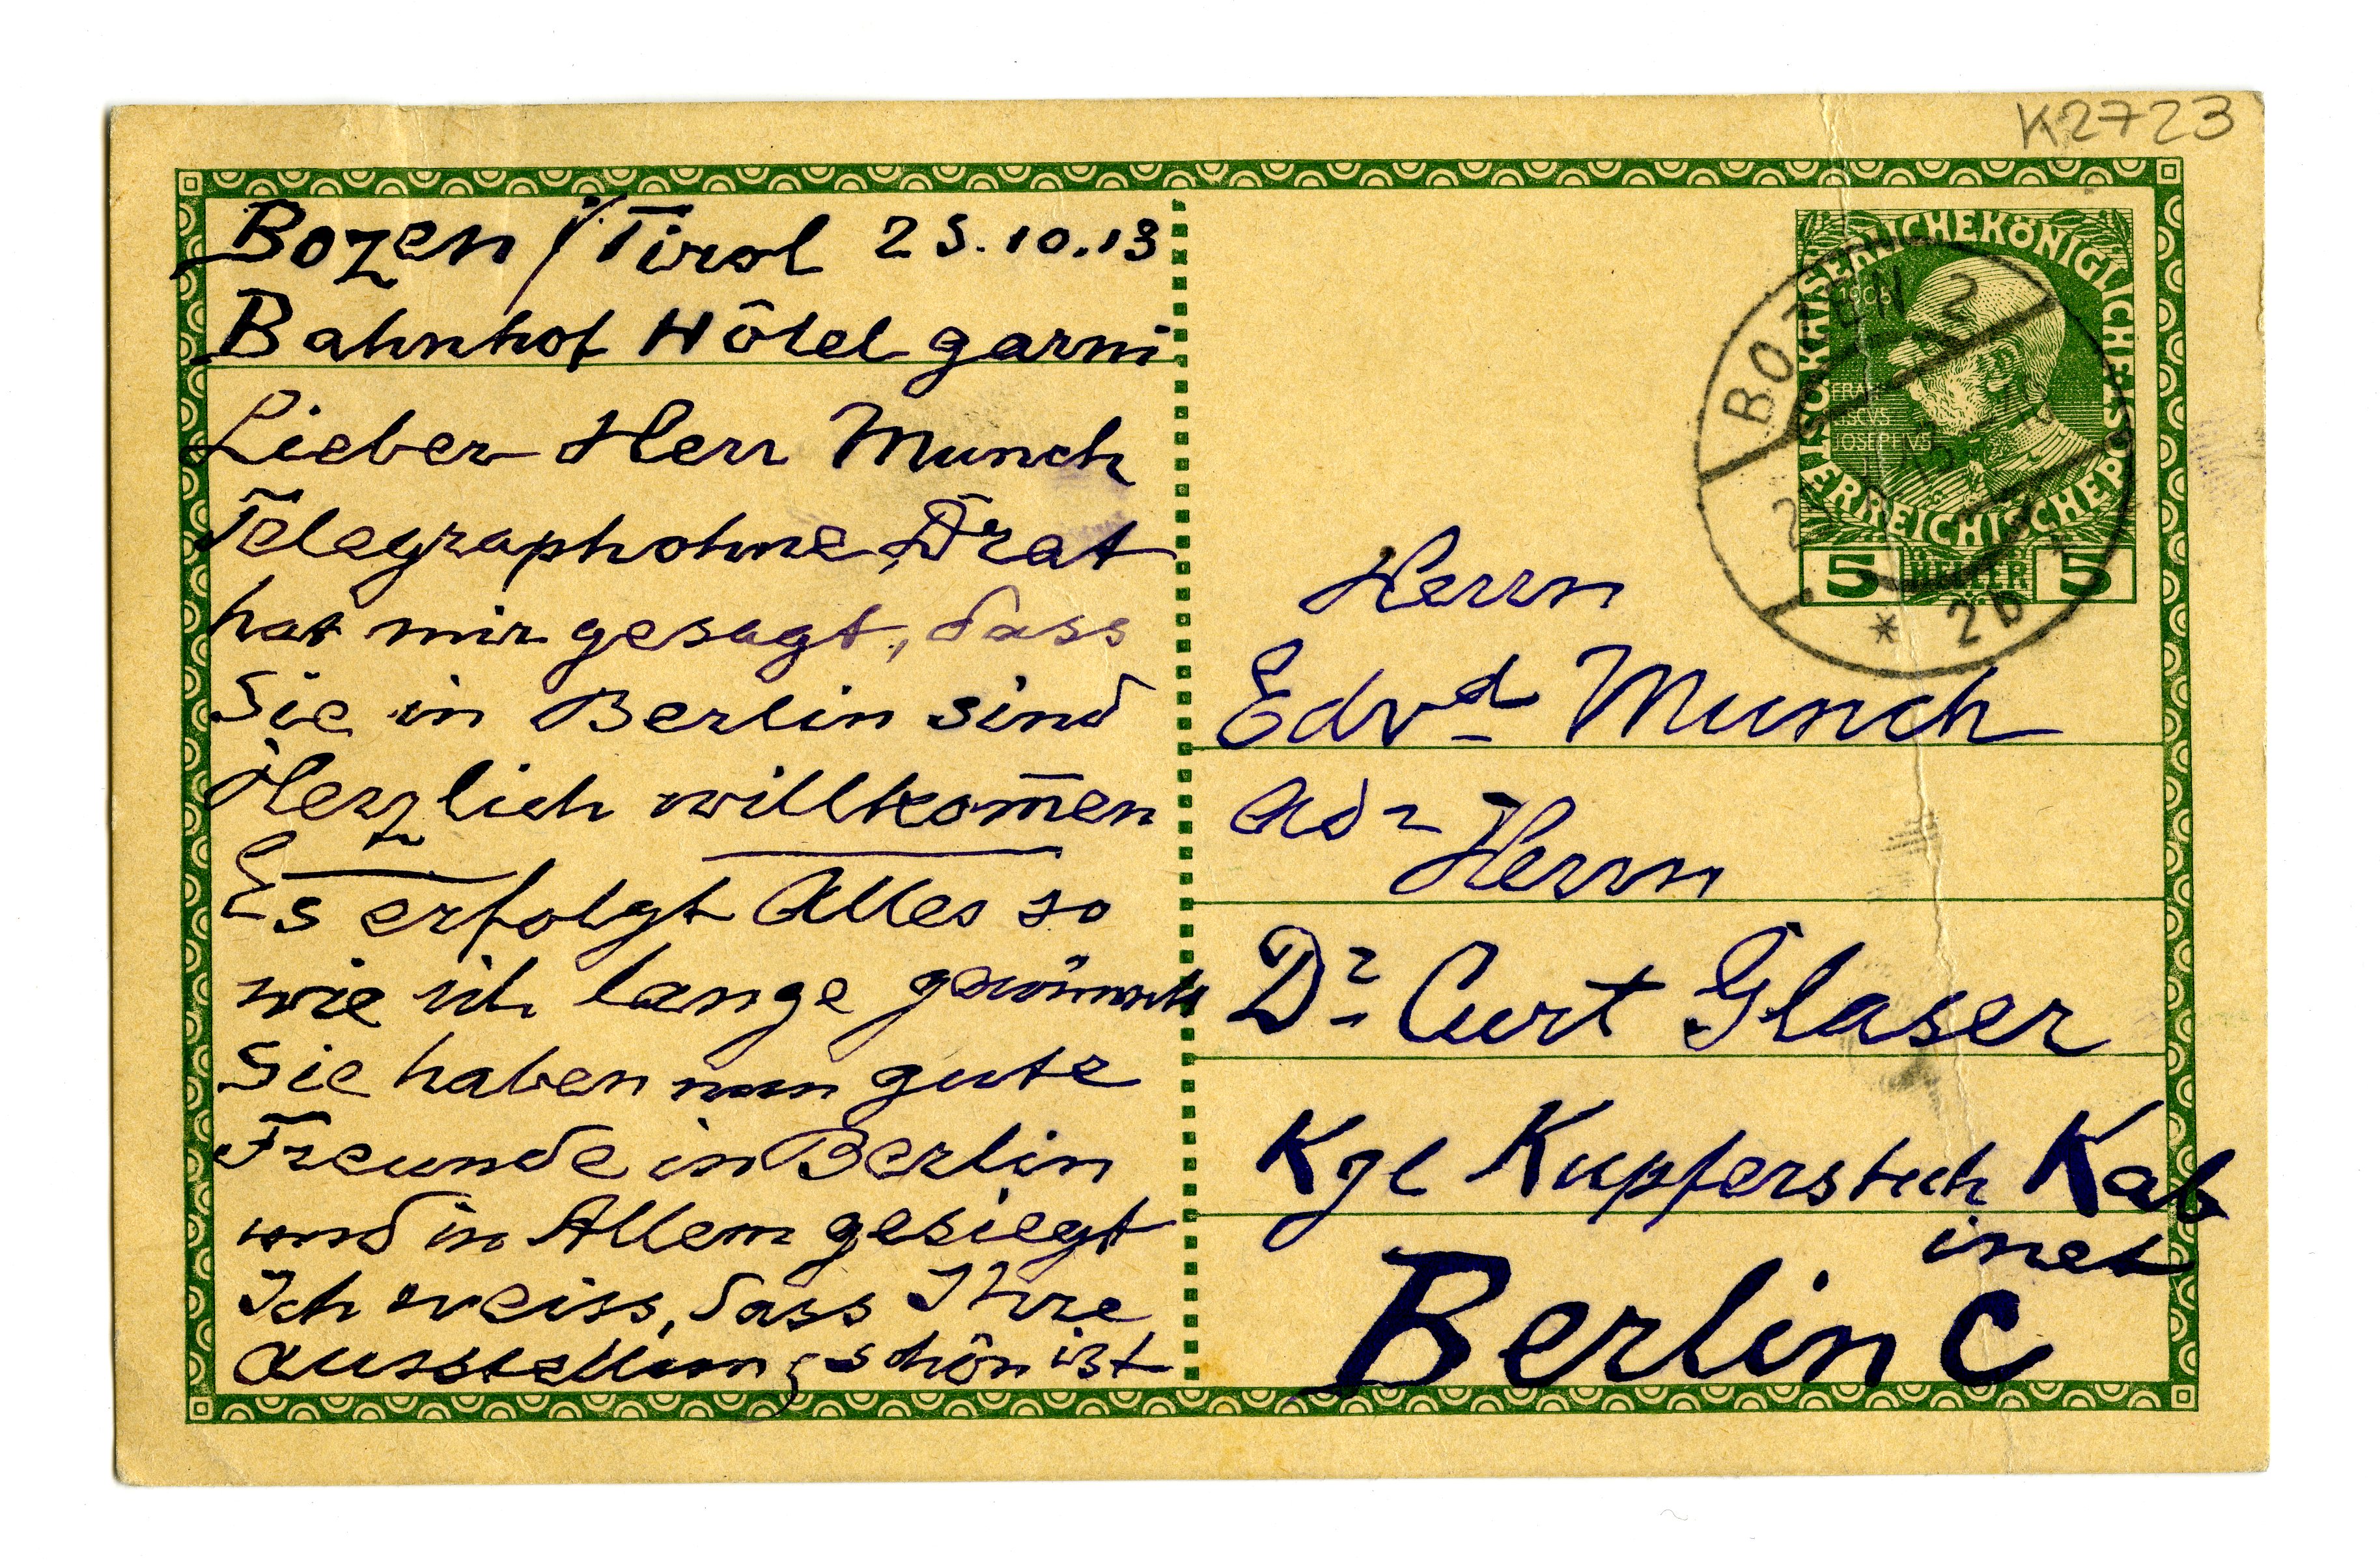 K2723
Bozen i/Tirol 23.10.13
Bahnhof Hôtel garni
Lieber Herr Munch
Telegraph ohne Drat
hat mir gesagt, dass
Sie in Berlin sind
Herzlich willkom̅en
Es erfolgt Alles so
wie ich lange gewünscht
Sie haben nun gute
Freunde in Berlin
und in Allem gesiegt
Ich weiss, dass Ihre
Ausstellung schön ist
KAISERLICHEKÖNIGLICHE
ÖSTERREICHISCHEPOST
1908
FRAN
ISCVS
IOSEPHVS
5 HELLER 5
BOZEN 2
13
* 2b *
Herrn
Edvd Munch
Adr Herrn
Dr Curt Glaser
Kgl Kupferstich Kab
inet
Berlin C